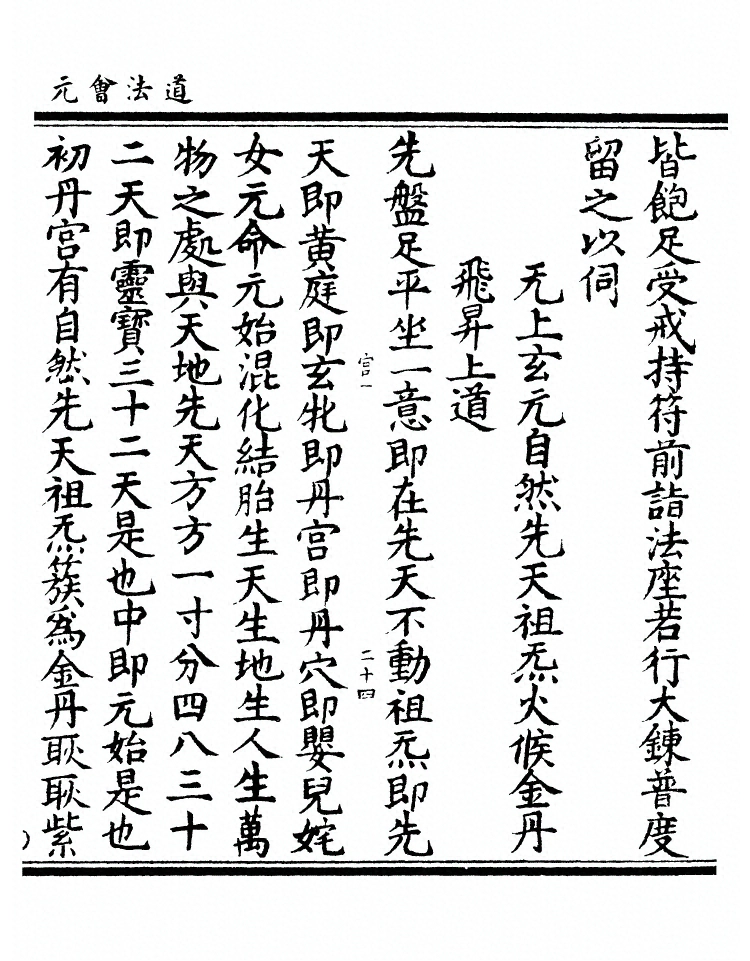 道法會元
皆飽足受戒持符前詣法座若行大鍊普度
留之以伺
无上玄元自然先天祖炁火候金丹
飛昇上道
先盤足平坐一意即在先天不動祖炁即先
宫一
二十四
天即黄庭即玄牝即丹宫即丹穴即嬰兒姹
女元命元始混化結胎生天生地生人生萬
物之處與天地先天方方一寸分四八三十
二天即靈寶三十二天是也中即元始是也
初丹宫有自然先天祖炁簇爲金丹耿耿紫